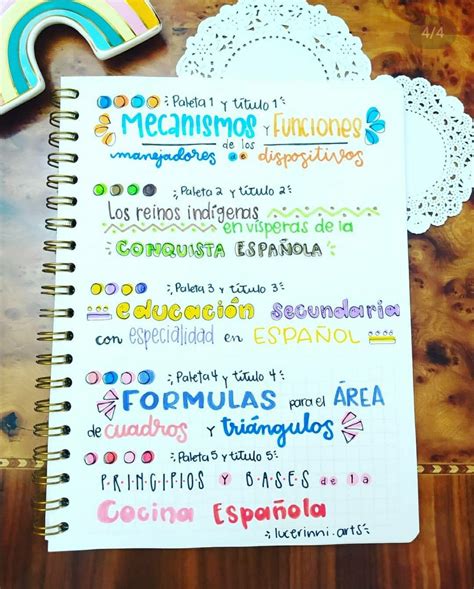 4/4
Paleta 1 y título 1
Mecanismos y Funciones
de los
manejadores de dispositivos
Paleta 2 y título 2
Los reinos indígenas
en vísperas de la
CONQUISTA ESPAÑOLA
Paleta 3 y título 3
educación secundaria
con especialidad en ESPAÑOL
Paleta 4 y título 4
FORMULAS para el ÁREA
de cuadros y triángulos
Paleta 5 y título 5
P·R·I·N·C·I·P·I·O·S Y B·A·S·E·S de la
Cocina Española
lucerinni.arts